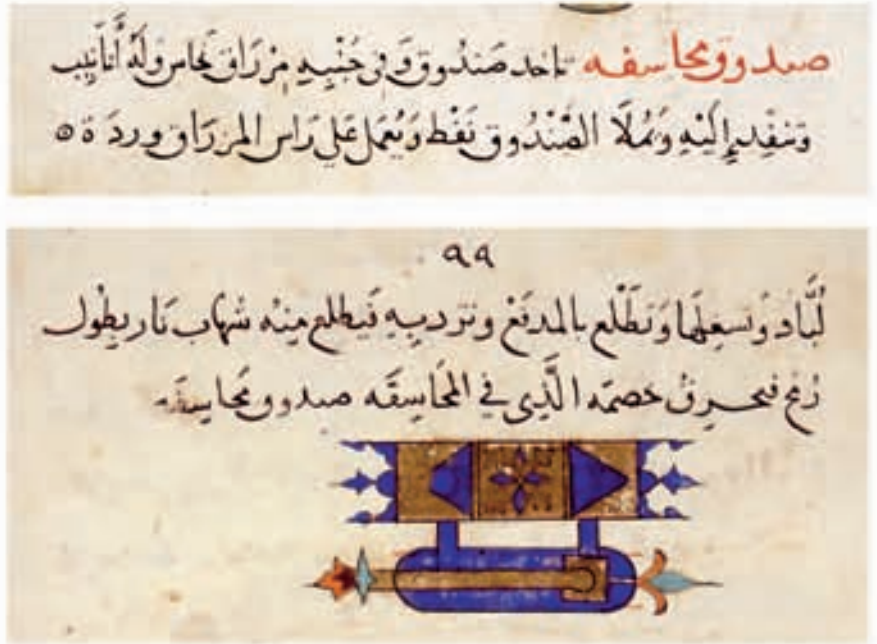 صندوق مخاسفه تاخد صَندُوق وَفى جَنْبِهِ مِزْرَاق نحاس وَلَهُ أَنَابِيب
وَتنفِد إِلَيْهِ وَتُملَا الصَّنْدُوق نَفْط وَيُعمَل عَلى رَاس المزرَاق وردَة ه
٩٩
لُبَّاد وَتسعِلهَا وَتَطْلع بالمدفَعْ وتردبِهِ فَيطلع مِنْه شهاب نَار بطُول
رُمح فيحرِقُ خصمَه الَّذِى فِي المخَاسِفَه صندوق مخَاسِفَه